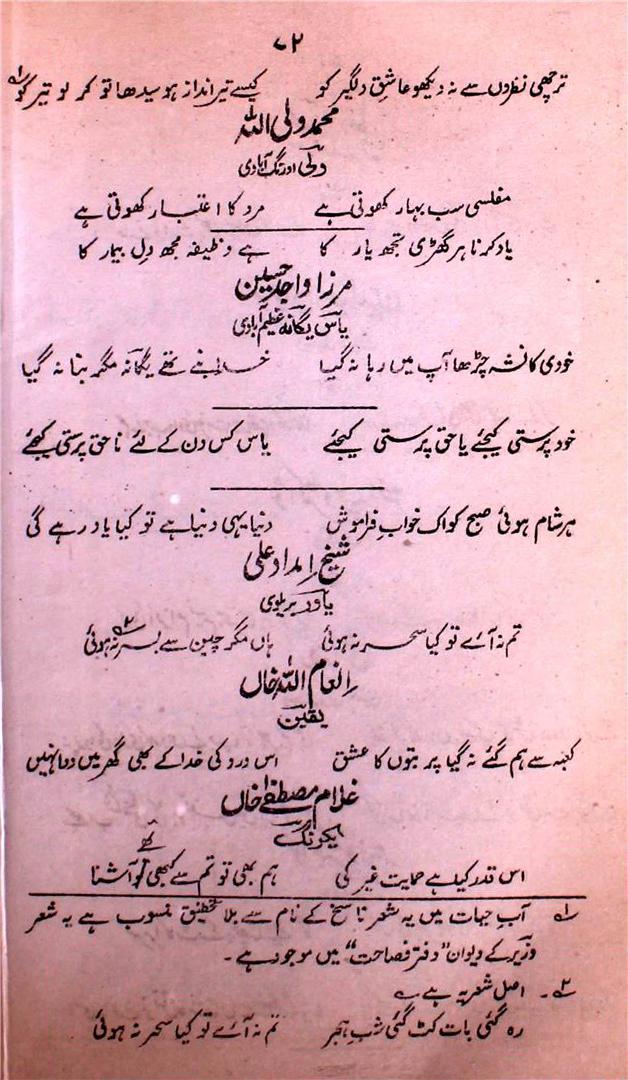 ۷۲
ترچھی نظروں سے نہ دیکھو عاشقِ دلگیر کو کیسے تیر انداز ہو سیدھا تو کر لو تیر کو ؎۱
محمد ولی اللہ
ولی اورنگ آبادی
مفلسی سب بہار کھوتی ہے مرد کا اعتبار کھوتی ہے
یاد کرنا ہر گھڑی تجھ یار کا ہے وظیفہ مجھ دل بیمار کا
مرزا واجد حسین
یاس یگانہ عظیم آبادی
خودی کا نشہ چڑھا آپ میں رہا نہ گیا خدا بنے تھے یگانہ مگر بنا نہ گیا
خود پرستی کیجئے یا حق پرستی کیجئے یاس کس دن کے لئے ناحق پرستی کیجئے
ہر شام ہوئی صبح کو اک خواب فراموش دنیا یہی دنیا ہے تو کیا یاد رہے گی
شیخ امداد علی
یاور بریلوی
تم نہ آئے تو کیا سحر نہ ہوئی ہاں مگر چین سے بسر نہ ہوئی ؎۲
انعام اللہ خاں
یقین
کعبہ سے ہم گئے نہ گیا پر بتوں کا عشق اس درد کی خدا کے بھی گھر میں دوا نہیں
غلام مصطفےٰ خاں
یکرنگ
اس قدر کیا ہے حمایت غیر کی ہم بھی تو تم سے کبھی تھے آشنا
؎۱ آبِ حیات میں یہ شعر ناسخ کے نام سے بلا تحقیق منسوب ہے یہ شعر
وزیر کے دیوان "دفتر فصاحت" میں موجود ہے۔
؎۲۔ اصل شعر یہ ہے ؎
رہ گئی بات کٹ گئی شبِ ہجر تم نہ آئے تو کیا سحر نہ ہوئی